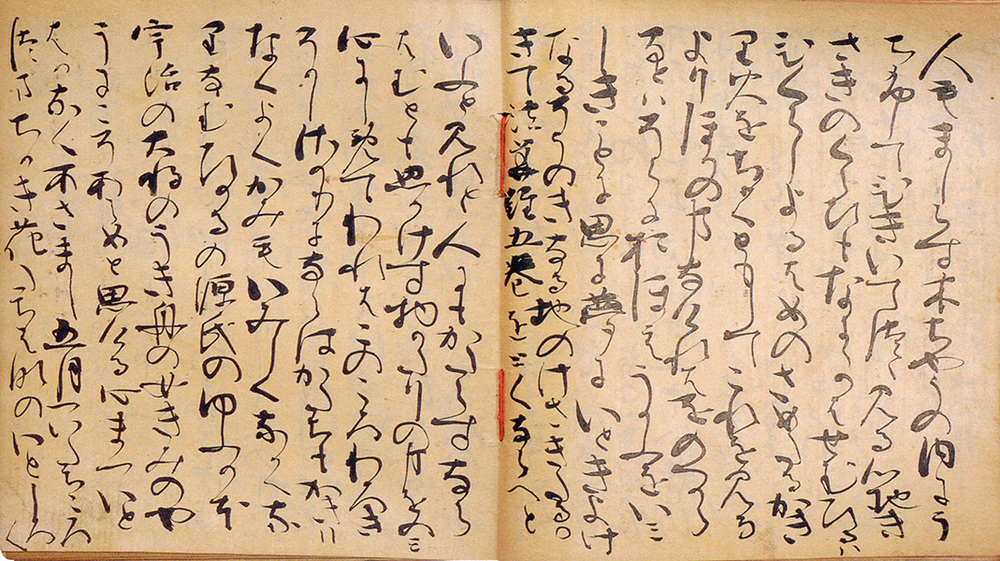 人もましらす木ちやうの内にう
ちふしてひきいてつゝ見る心地き
さきのくらひもなにゝかはせむひるハ
ひくらしよるはめのさめたるかき
り火をちかくともしてこれを見る
よりほかの事なけれはをのつから
なとハそらにおほえうかふをいみ
しきことに思に夢にいときよけ
なるそうのきなる地のけさきたるか
きて法華経五巻をとくならへと
いふと見れと人にもかたらすなら
はむとも思かけす物かたりの事をのみ
心にしめてわれはこのころわろき
そかしさかりにならはかたちもかきり
なくよくかみもいみしくなかくな
りなむひかるの源氏のゆふかほ
宇治の大将のうき舟の女きみのや
うにこそあらめと思ける心まついと
はかなくあさまし五月ついたちころ
つまちかき花たちはなのいとしろく